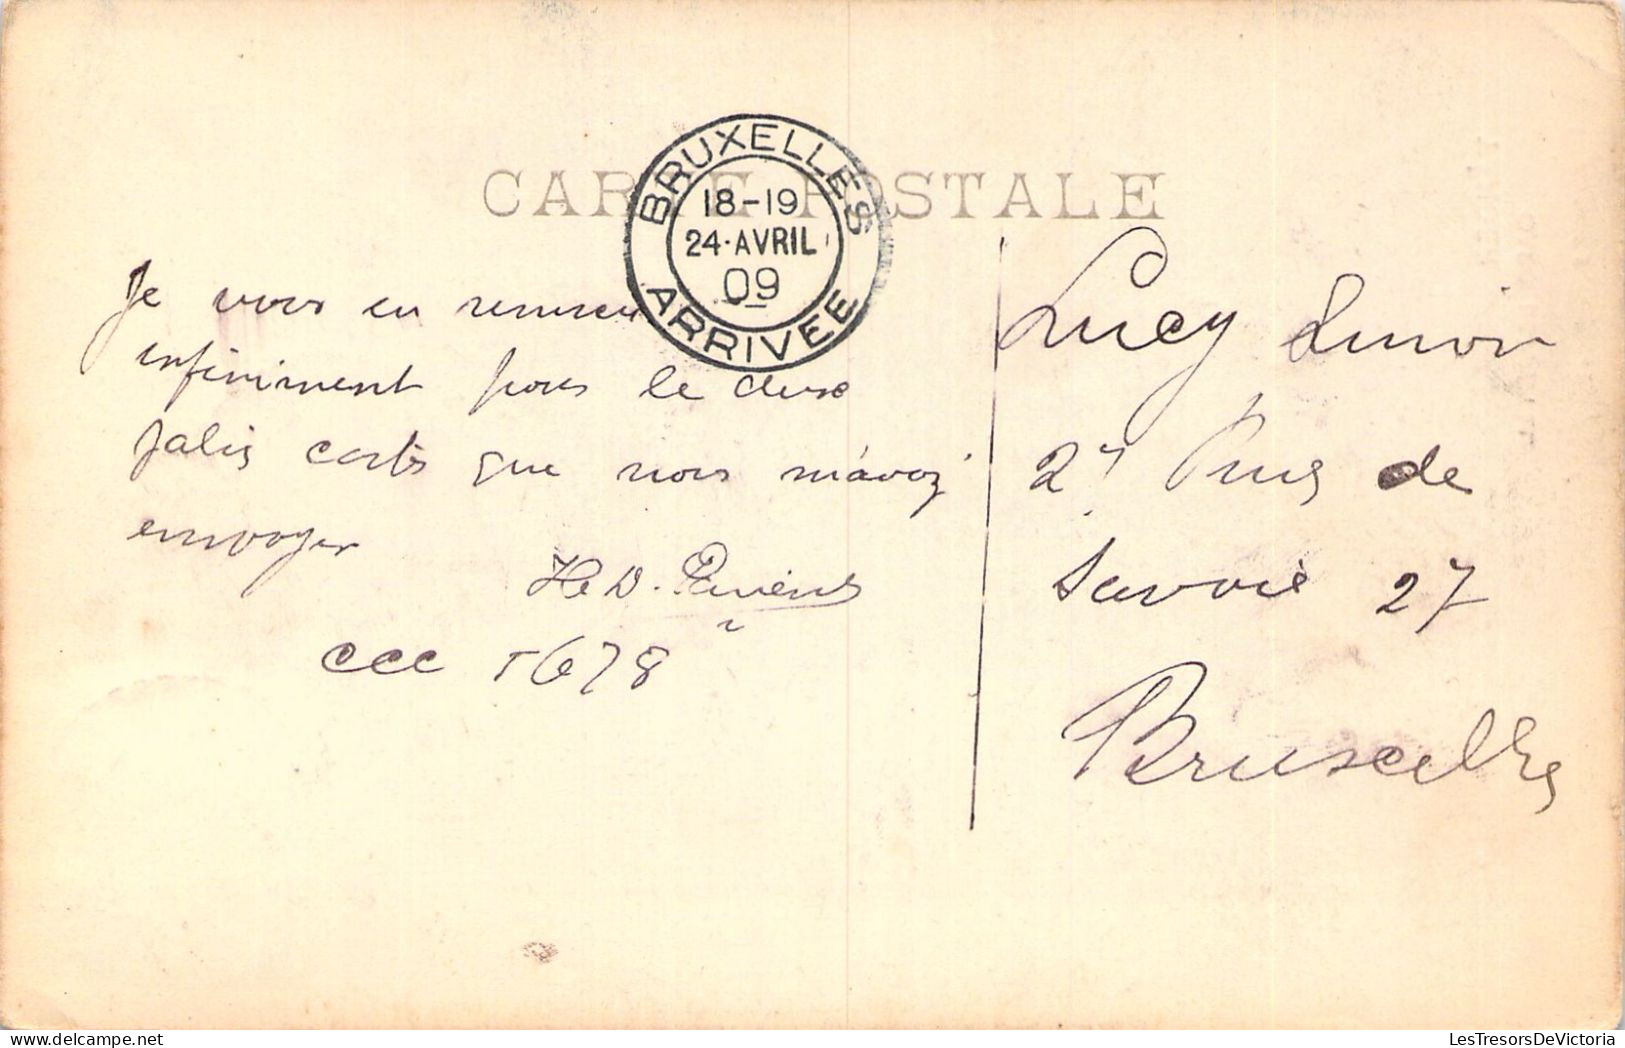 CARTE POSTALE
BRUXELLES
18-19
24·AVRIL
09
ARRIVEE
Je vous en
infiniment pour le deux
jalis cartes que vous m'avez
envoyer
CCC 5678
Lucy Simon
27 Rue de
Savoie 27
Bruxelles
LesTresorsDeVictoria